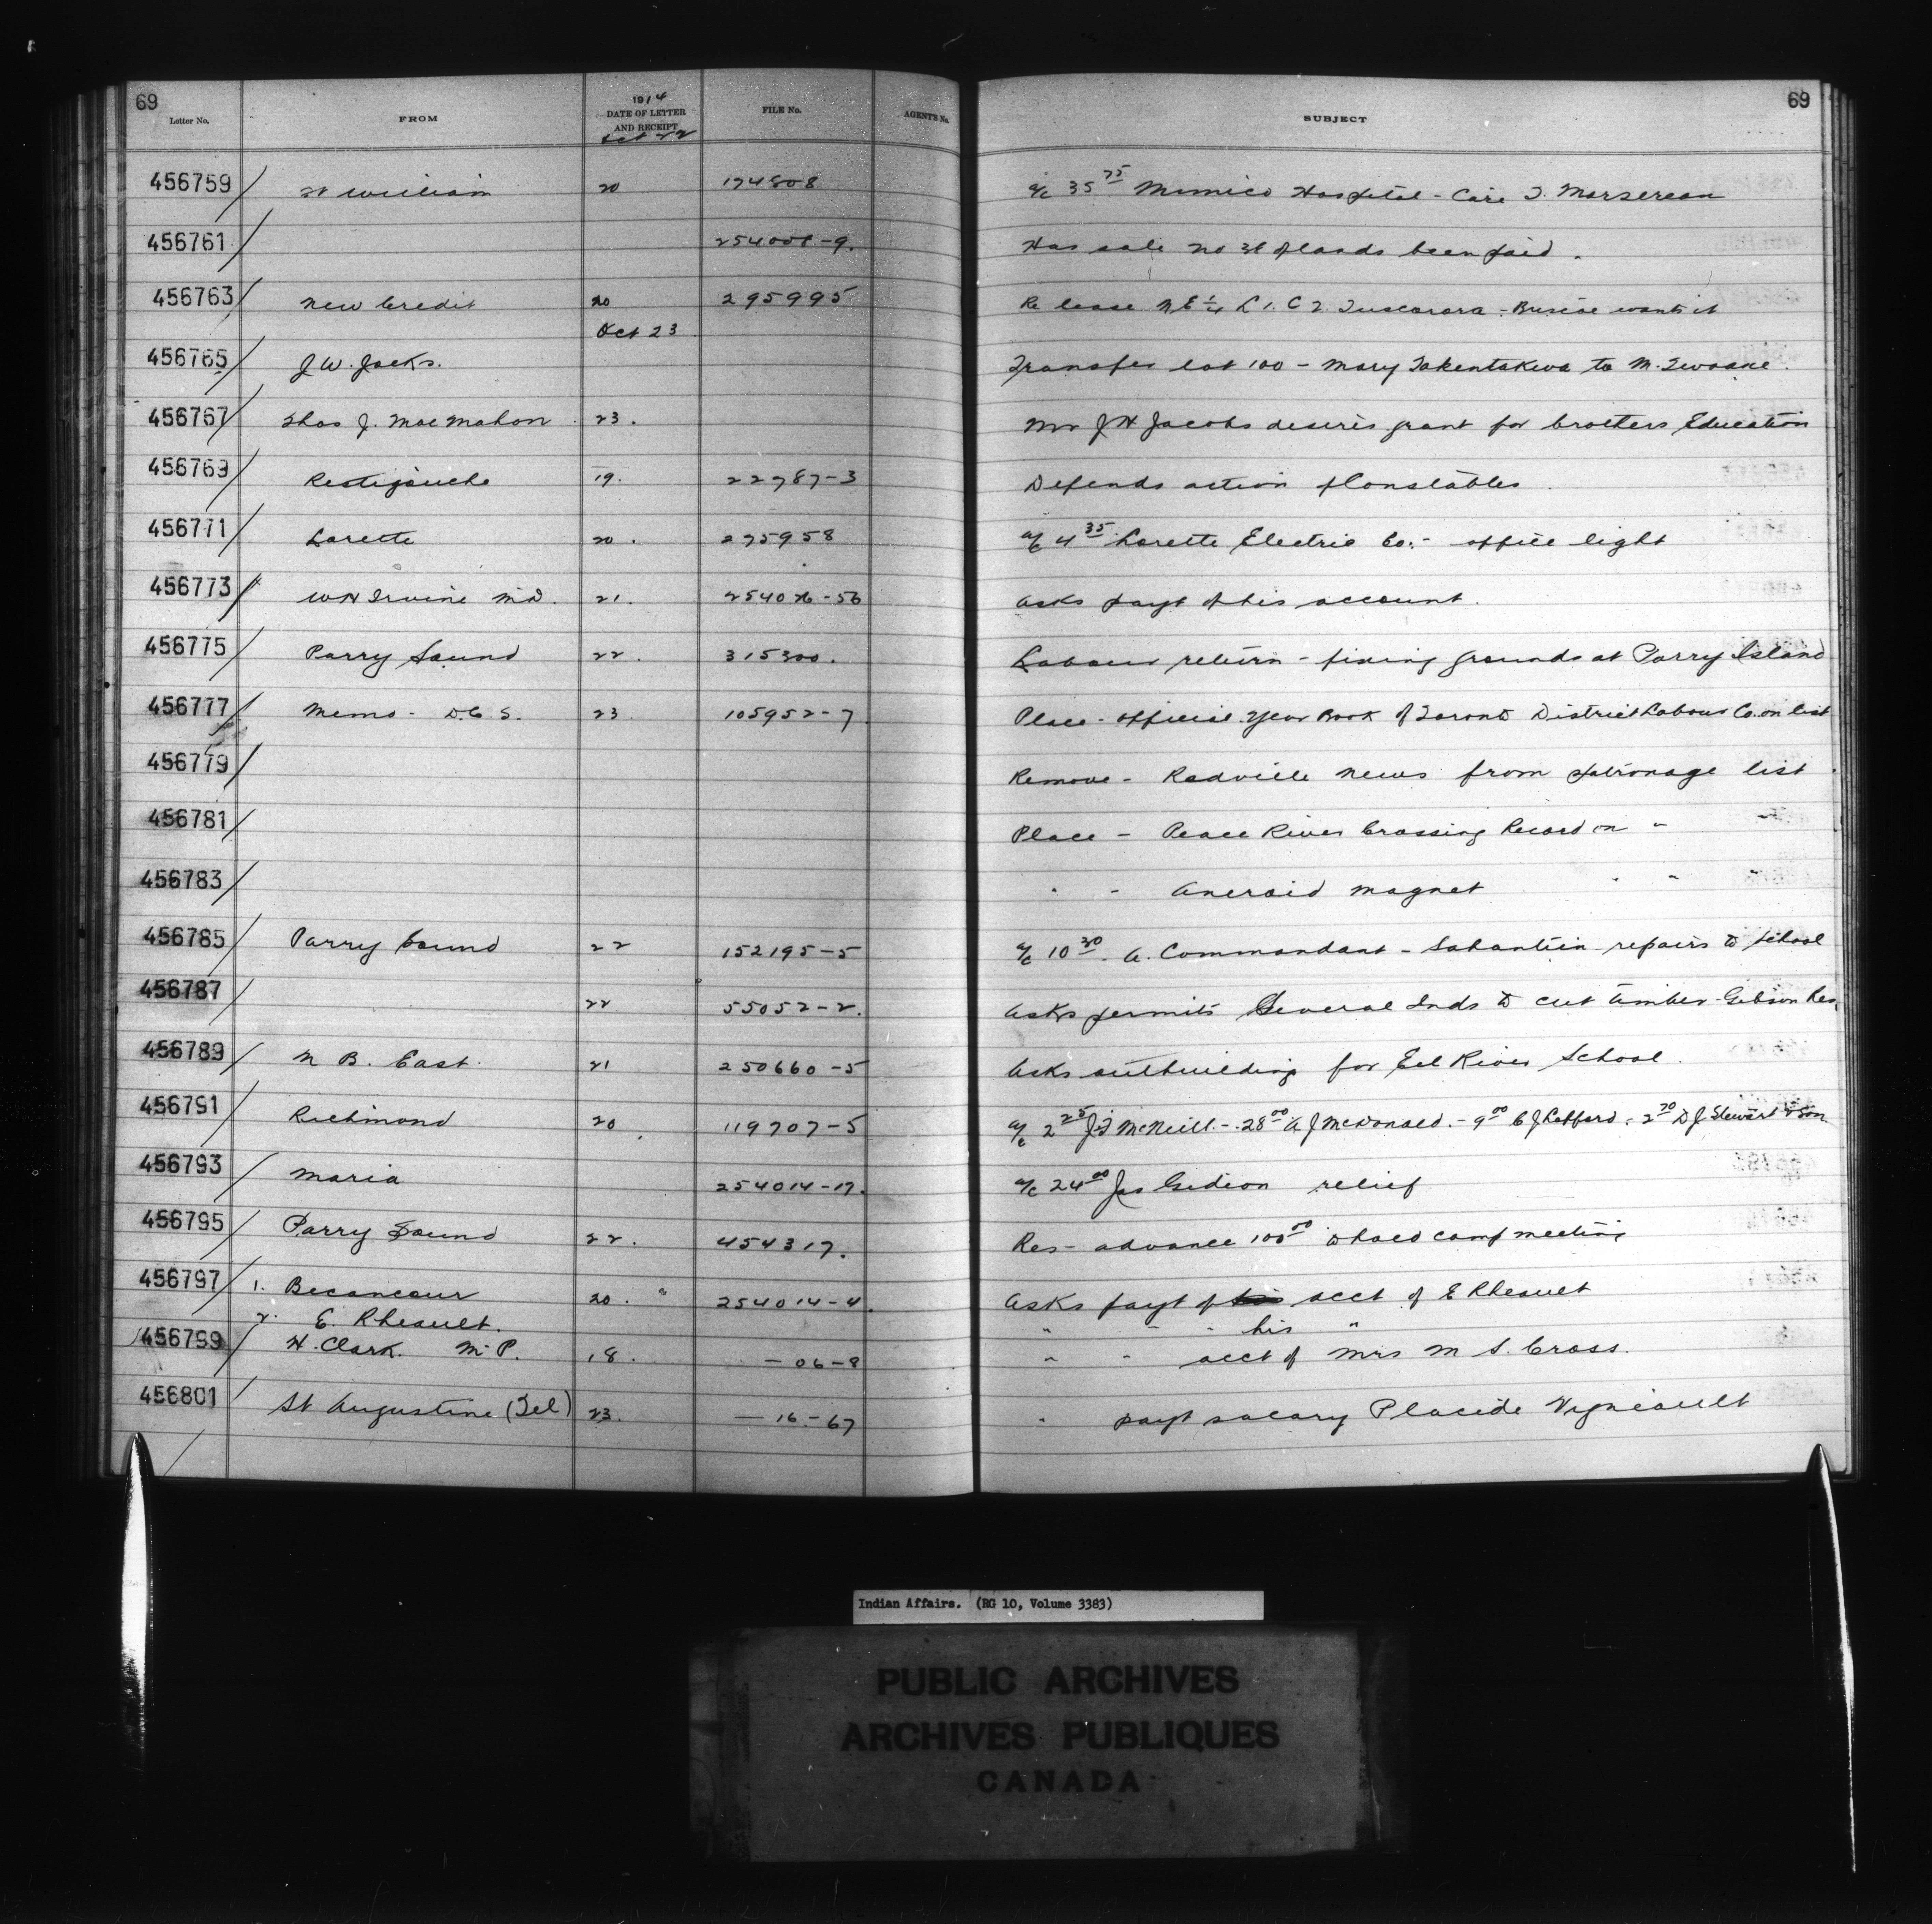 69
69
Letter No.
FROM
1914
DATE OF LETTER
AND RECEIPT
Oct 22
FILE No.
AGENTS No.
SUBJECT
456759 Ft William 20 174808 a/c 35 75 Mimico Hospital - Care
456761 Has sale no of lands been paid.
456763 New Credit 20 295995 Re lease N E 1/4 L 1. C 2. Tuscarora - wants it
Oct 23
456765 J W. Jacks. Transfer lot 100 - Mary Takentakwa to M.
456767 Thos J. MacMahon 23. J H Jacobs desires grant for brothers Education
456769 Restigouche 19. 22787-3 Defends action of Constables
456771 Lorette 20. 275958 a/c 4 35 Lorette Electric Co. - office light
456773 W H Irvine M.D. 21. Asks payt of his account.
456775 Parry Sound 22. 315300. Labour return - fixing grounds at Parry Island
456777 Memo - D.C.S. 23 105952-7 Place - Official Year Book of Toronto District Labour Co. on list
456779 Remove - Radville News from patronage list
456781 Place - Peace River Crossing Record on "
456783 " - Aneroid Magnet " "
456785 Parry Sound 22 152195-5 a/c 10 30 - A. Commandant - repairs to School
456787 22 55052-2. Asks permits Several Inds to cut timber - Gibson Res.
456789 N B. East. 21 250660-5 Asks outbuilding for Eel River School.
456791 Richmond 20 119707-5 a/c 2 25 McNeill - 28 00 A J McDonald. - 9 00 C J - 2 70 D J Stewart & Son.
456793 Maria 254014-17. a/c 24 00 Jas Gideon relief
456795 Parry Sound 22. 454317. Res - advance 100 00 to hold camp meeting
456797 1. Becancour 20. " 254014-4. Asks payt of acct of E Rheault
2. E. Rheault. " - " his "
456799 H. Clark. M.P. 18. - 06-8 " " acct of Mrs M S. Cross.
456801 St Augustine (Tel) 23. - 16-67 " payt salary Placide Vigneault
Indian Affairs. (RG 10, Volume 3383)
PUBLIC ARCHIVES
ARCHIVES PUBLIQUES
CANADA